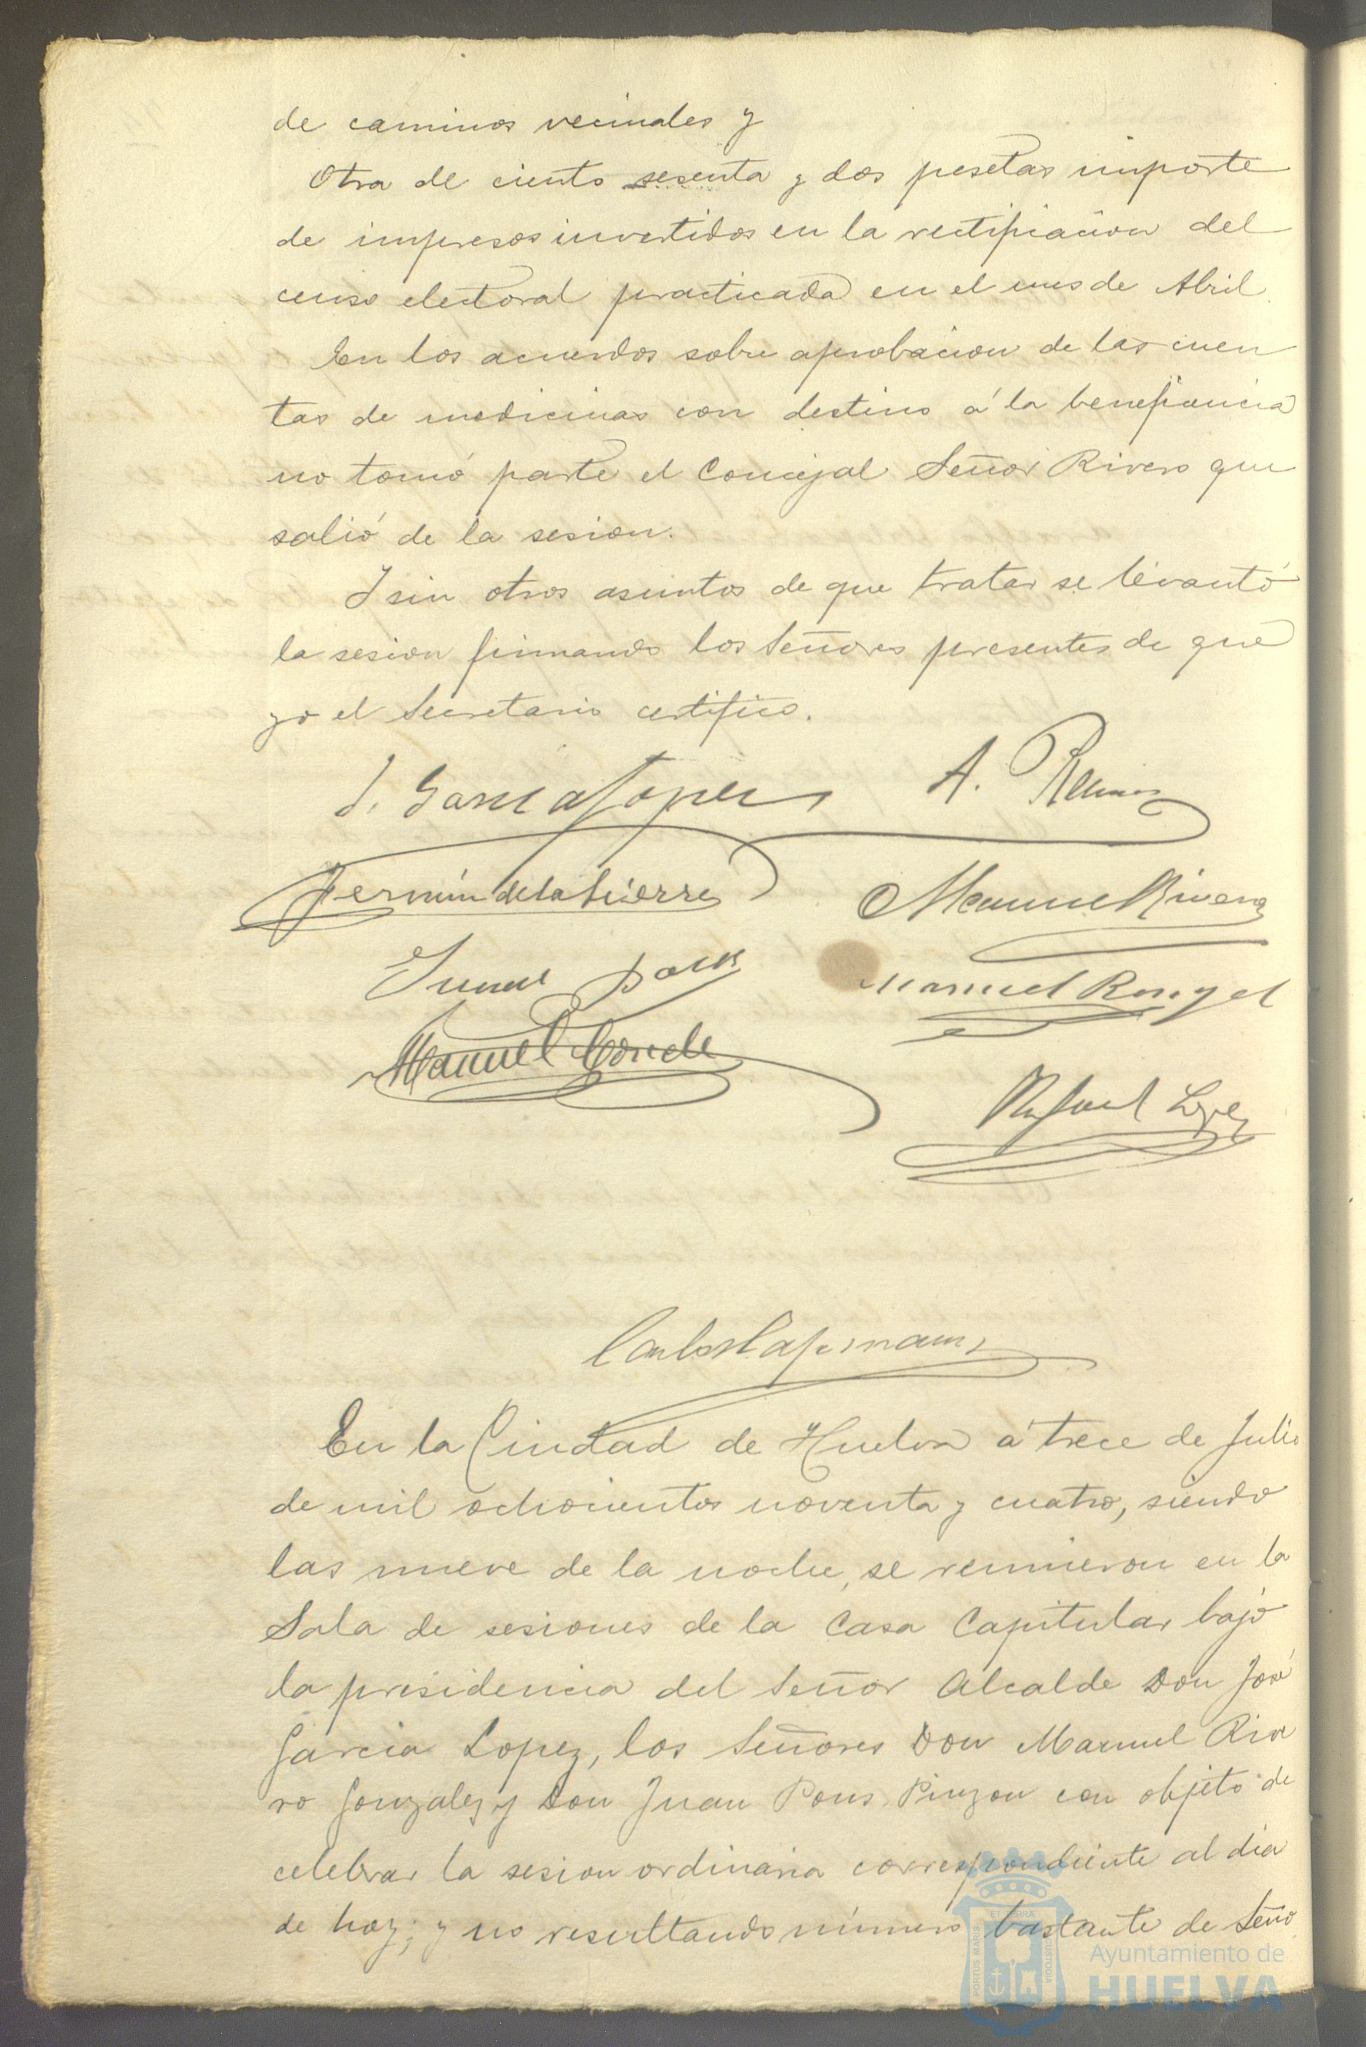 de caminos vecinales y
Otra de ciento sesenta y dos pesetas importe
de impresos invertidos en la rectificacion del
censo electoral practicada en el mes de Abril.
En los acuerdos sobre aprobacion de las cuen
tas de medicinas con destino á la beneficencia
no tomó parte el Concejal Señor Rivero que
salió de la sesion.
Y sin otros asuntos de que tratar se levantó
la sesion firmando los Señores presentes de que
yo el Secretario certifico.
J. Garcia Lopez A.
Fermín de la Sierra Manuel Rivero
Juan Pons
Manuel Rengel
Manuel Conde
Rafael Lopez
Carlos
En la Ciudad de Huelva á trece de Julio
de mil ochocientos noventa y cuatro, siendo
las nueve de la noche, se reunieron en la
Sala de sesiones de la Casa Capitular bajo
la presidencia del Señor Alcalde Don José
Garcia Lopez, los Señores Don Manuel Rive
ro Gonzalez y Don Juan Pons Pinzon con objeto de
celebrar la sesion ordinaria correspondiente al dia
de hoy; y no resultando número bastante de Seño
PORTUS MARIS ET TERRA CUSTODIA
Ayuntamiento de
HUELVA